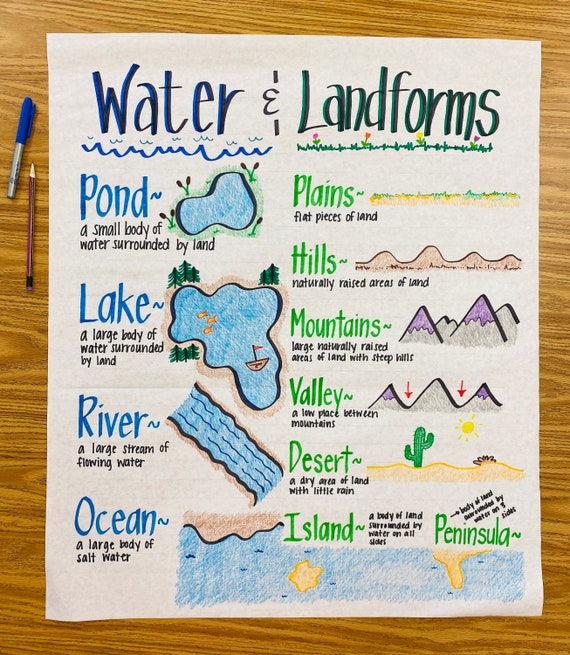 Water & Landforms
Pond~
a small body of
water surrounded by land
Lake~
a large body of
water surrounded
by land
River~
a large stream of
flowing water
Ocean~
a large body of
salt water
Plains~
flat pieces of land
Hills~
naturally raised areas of land
Mountains~
large naturally raised
areas of land with steep hills
Valley~
a low place between
mountains
Desert~
a dry area of land
with little rain
Island~
a body of land
surrounded by
water on all
sides
Peninsula~
body of land
surrounded by
water on
sides